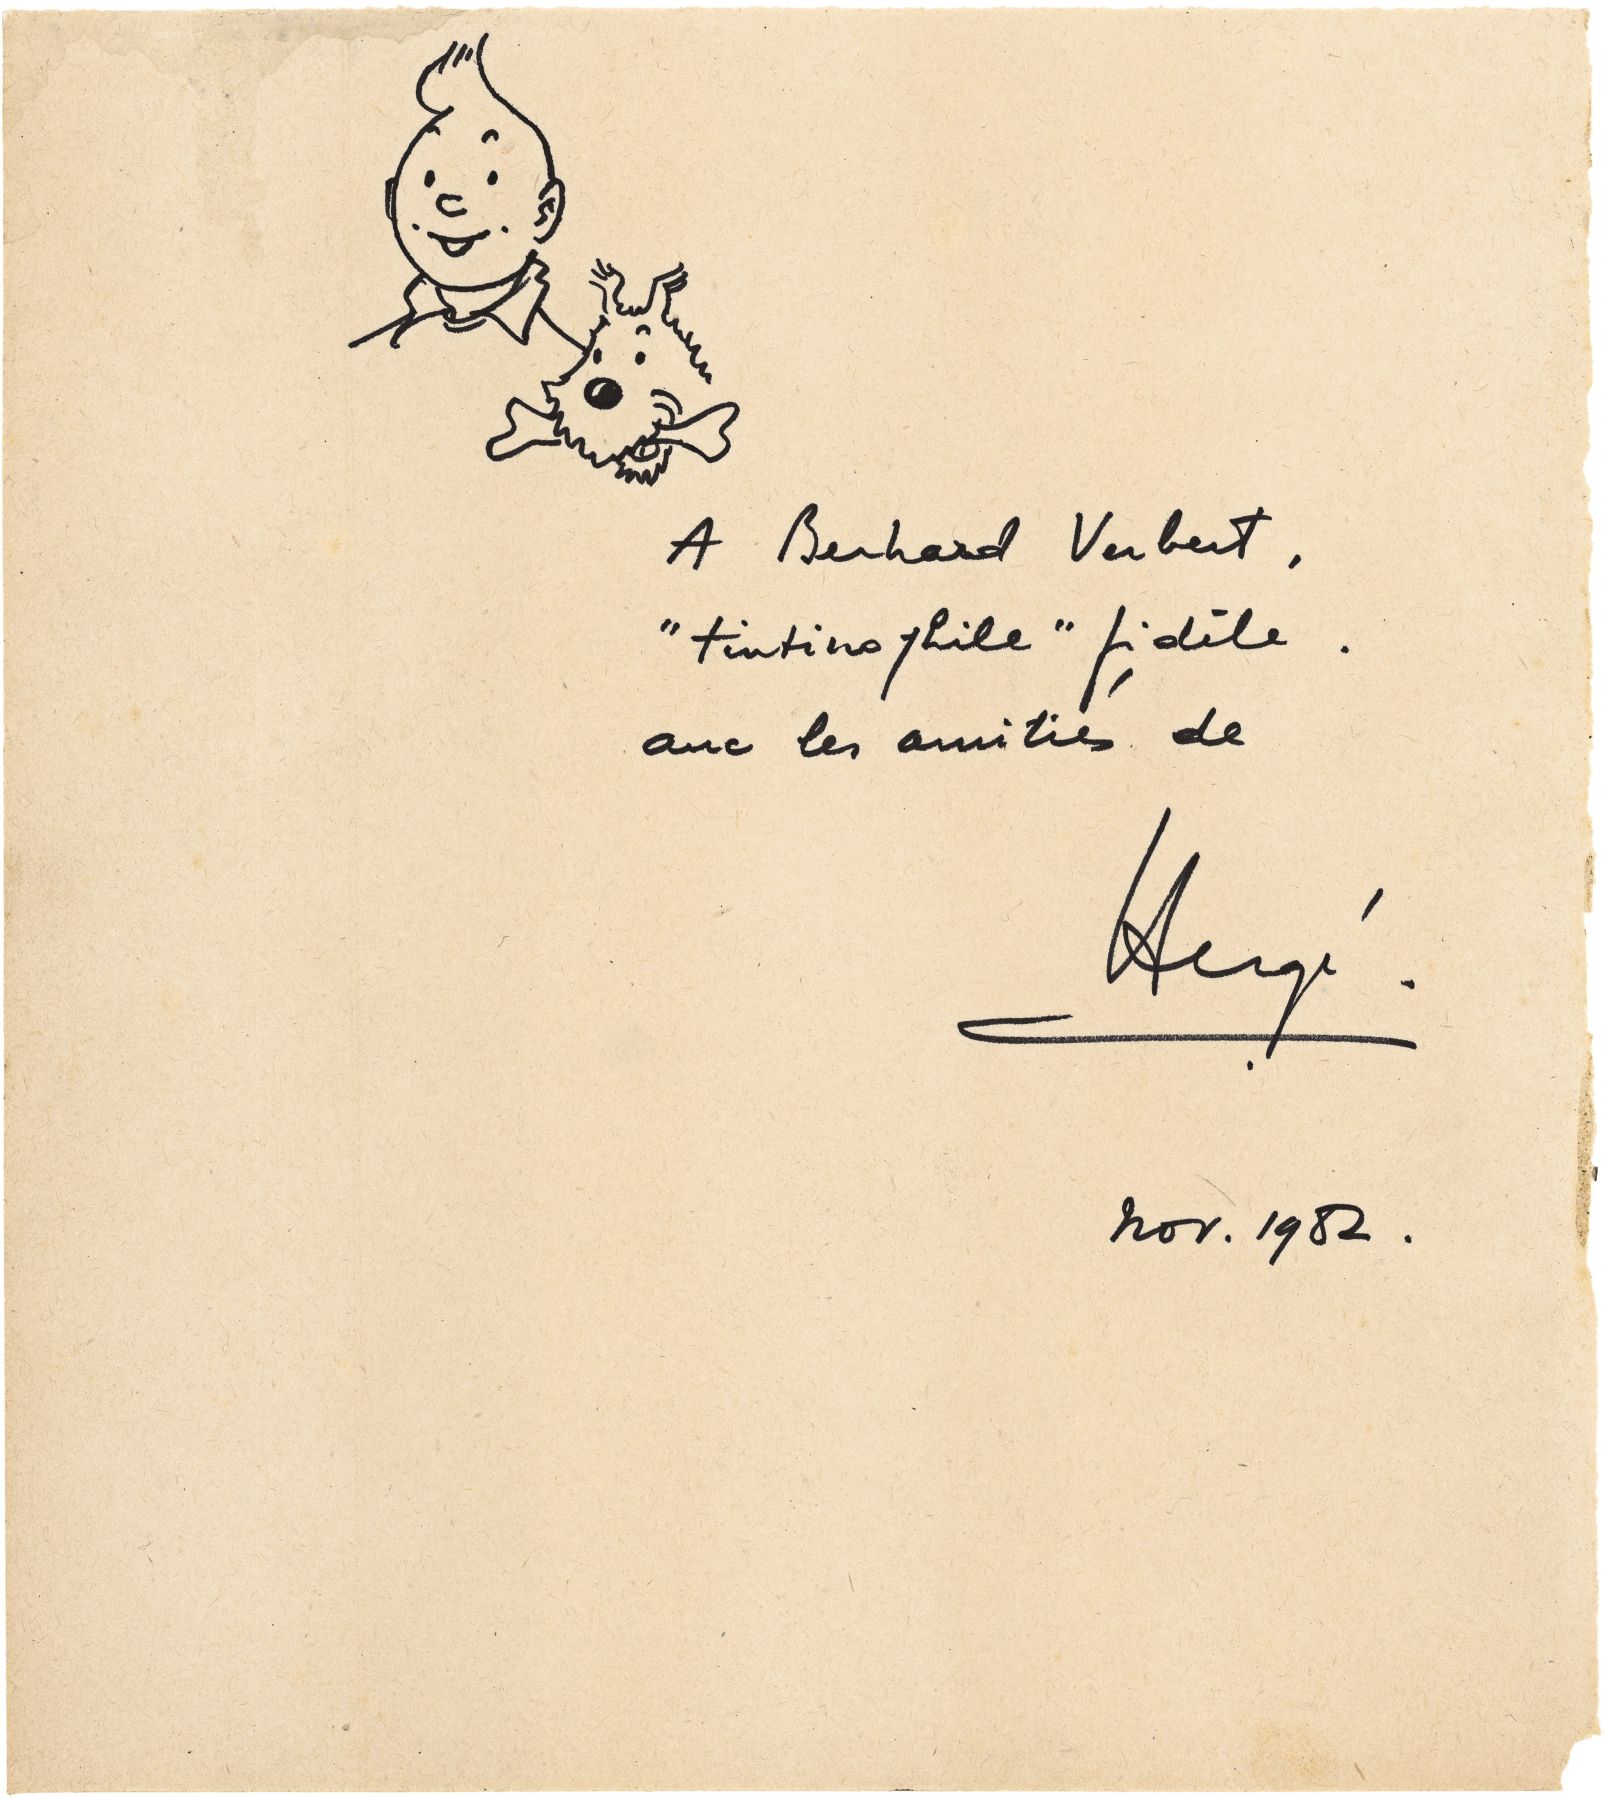 A Bernhard Verbert,
"tintinophile" fidèle.
avec les amitiés de
Hergé.
nov. 1982.